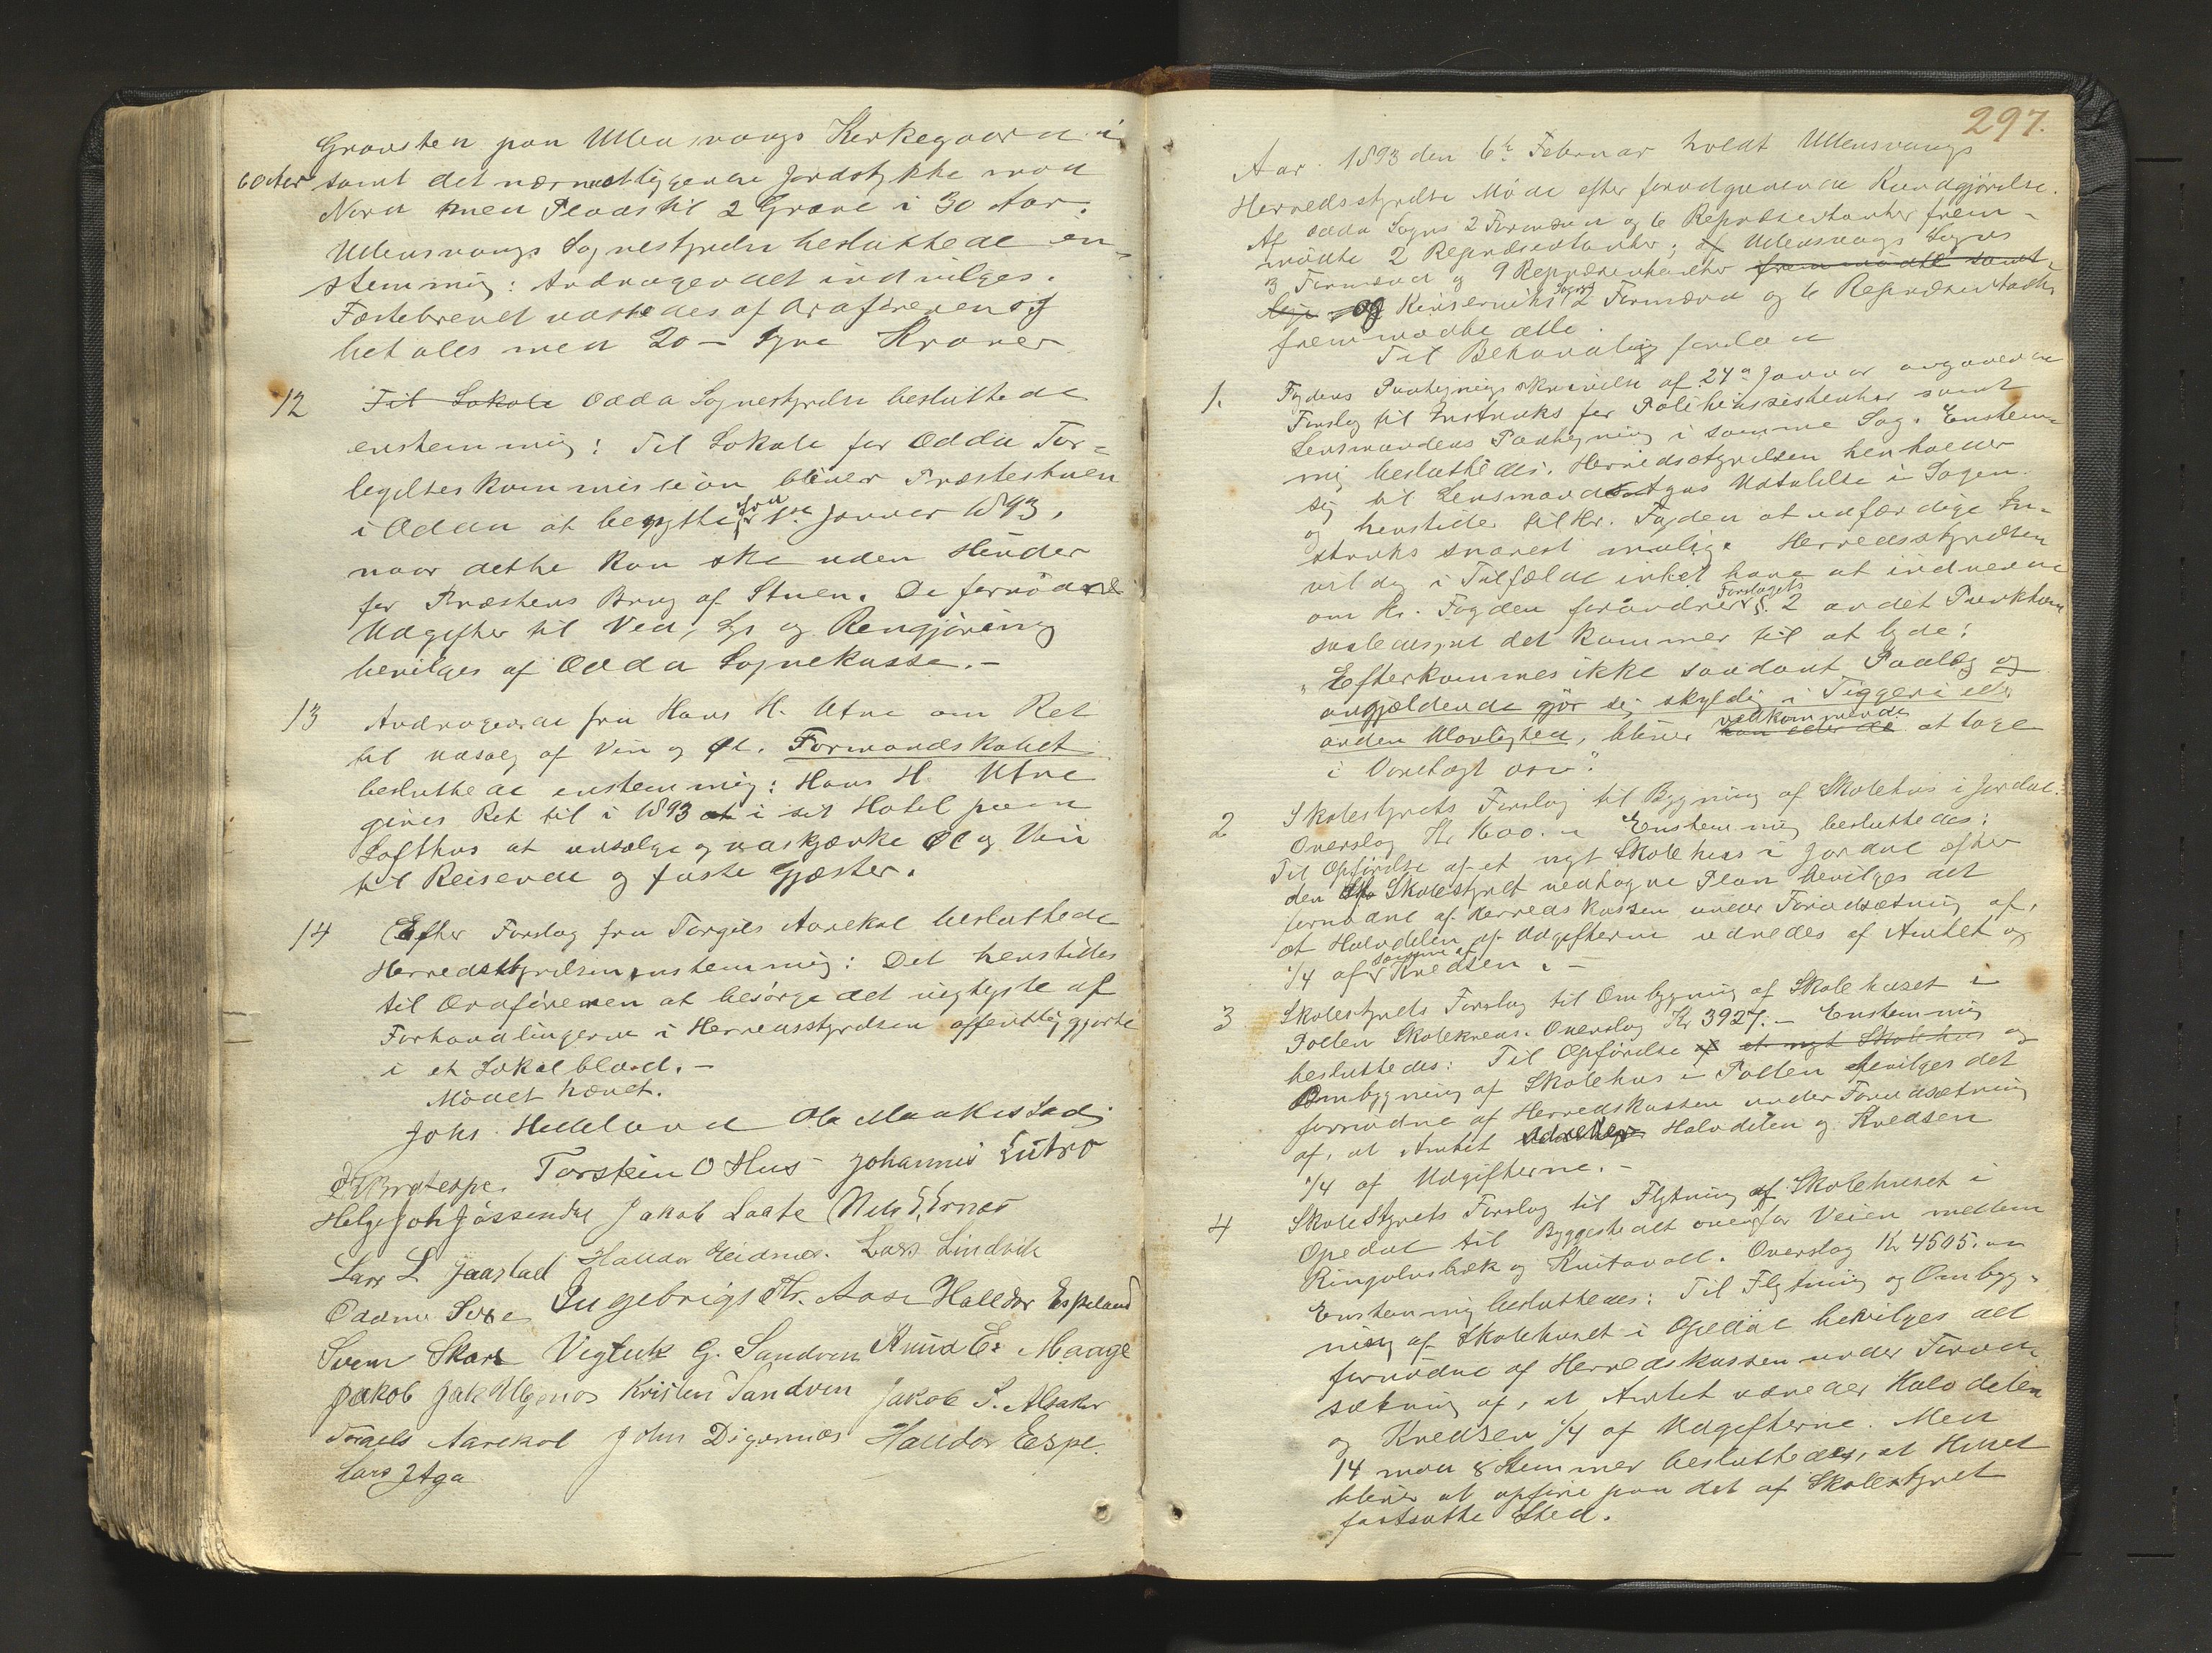 Gravsten paa Ullensvangs Kirkegaard i
60 Aar samt det nærmestliggende Jordstykke mod
Nord med Plads til 2 Grave i 30 Aar.
Ullensvangs Sognestyrelse besluttede en-
stemmig: Andragendet indvilges.
Festebrevet udstedes af Ordføreren og
betales med 20 – tyve Kroner
12 Til Lokale Odda Sognestyrelse besluttede
enstemmig: Til Lokale for Odda For-
legelseskommission bliver Præstestuen
i Odden at benytte fra 1ste Januar 1893,
naar dette kan ske uden Hinder
for Præstens Brug af Stuen. De fornødne
Udgifter til Ved, Lys og Rengjøring
bevilges af Odda Sognekasse.-
13 Andragende fra Hans H. Utne om Ret
til Udsalg af Vin og Øl. Formandskabet
besluttede enstemmig: Hans H. Utne
gives Ret til i 1893 at i sit Hotel paa
Lofthus at udsælge og udskjænke Øl og Vin
til Reisende og faste Gjæster.
14 Efter Forslag fra Torgils Aarekol besluttede
Herredsstyrelsen enstemmig: Det henstilles
til Ordføreren at besørge det vigtigste af
Forhandlingerne i Herredsstyrelsen offentliggjorte
i et Lokalblad.-
Mødet hævet.
Johs. Helland Ola Maakestad
Torstein O Hus Johannis Lutro
Helge Joh Jøssendal Jakob Laate Nils Ernes
Lars L Jaastad Halldor Eidnes. Lars Lindvik
Oddmu Sexe Ingebrigt Th. Aase Halldor Espeland
Svein Skare Vigleik G. Sandven Knud E. Maage
Jakob Jak Ulgenes Kristen Sandven Jakob S. Alsaker
Torgils Aarekol John Digernæs Halldor Espe.
Lars J Aga
297.
Aar 1893 den 6te Februar holdt Ullensvangs
Herredsstyrelse Møde efter forudgaaende Kundgjørelse.
Af Odda Sogns 2 Formænd og 6 Repræsentanter frem-
mødte 2 Repræsentanter; af Ullensvangs Sogns
3 Formænd og 9 Repræsentanter fremmødte samt-
lige, og Kinserviks Sogns 2 Formænd og 6 Repræsentanter
fremmødte alle.
Til Behandling forelaa
1. Fogdens Paategningsskrivelse af 24de Januar angaaende
Forslag til Instruks for Politiassistenter samt
Lensmandens Paategning i samme Sag. Enstem-
mig besluttedes: Herredsstyrelsen henholder
sig til Lensmand Agas Udtalelse i Sagen
og henstiller til Hr. Fogden at udfærdige In-
struks snarest mulig. Herredsstyrelsen
vil dog i Tilfælde intet have at indvende
om Hr. Fogden forandrer Forslagets §. 2 andet Punktum
saaledes, at det kommer til at lyde:
"Efterkommes ikke saadant Paalæg og
angjældende gjør sig skyldig i Tiggeri eller
anden Ulovlighed, bliver vedkommende han eller de at tage
i Varetægt osv."
2 Skolestyrets Forslag til Bygning af Skolehus i Jordal.
Overslag Kr 1600. – Enstemmig besluttedes:
Til Opførelse af et nyt Skolehus i Jordal efter
den af Skolestyret vedtagne Plan bevilges det
fornødne af Herredskassen under Forudsætning af,
at Halvdelen af Udgifterne udredes af Amtet og
1/4 af Kredsen. -
3 Skolestyrets Forslag til Ombygning af Skolehuset i
Pollen Skolekreds. Overslag Kr 3927. – Enstemmig
besluttedes: Til Opførelse af et nyt Skolehus og
Ombygning af Skolehus i Pollen bevilges det
fornødne af Herredskassen under Forudsætning
af, at Amtet udreder Halvdelen og Kredsen
1/4 af Udgifterne. -
4 Skolestyrets Forslag til Flytning af Skolehuset i
Opedal til Byggestedt ovenfor Veien mellem
Ringolvsbæk og Knitavoll. Overslag Kr 4505.
Enstemmig besluttedes: Til Flytning og Ombyg-
ning af Skolehuset i Opedal bevilges det
fornødne af Herredskassen under Forud-
sætning af, at Amtet udreder Halvdelen
og Kredsen 1/4 af Udgifterne. Med
14 mod 8 Stemmer besluttedes, at Huset
bliver at opføre paa det af Skolestyret
fastsatte Sted.